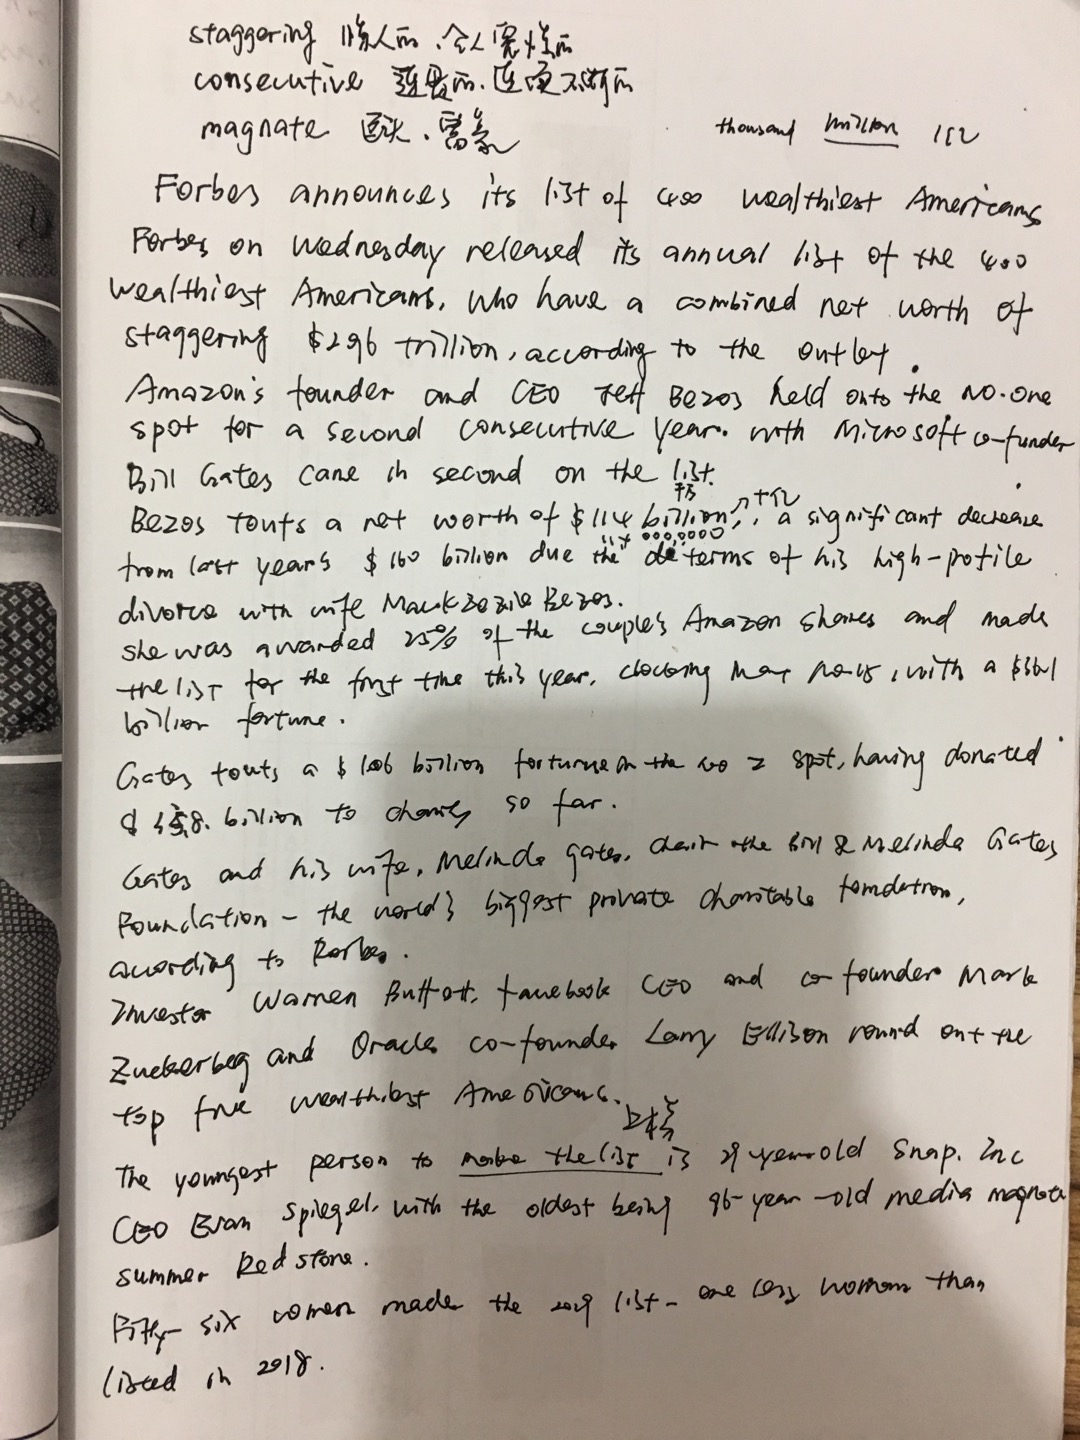 staggering 惊人的、令人震惊的
consecutive 连贯的、连续不断的
magnate 巨头、富豪
thousand million 1亿
Forbes announces its list of 400 wealthiest Americans
Forbes on Wednesday released its annual list of the 400
wealthiest Americans, who have a combined net worth of
staggering $296 trillion, according to the outlet.
Amazon's founder and CEO Jeff Bezos held onto the NO.one
spot for a second consecutive year. with Microsoft co-funder
Bill Gates came in second on the list.
十亿
Bezos touts a net worth of $114 billion, a significant decrease
from last year's $160 billion due the terms of his high-pofile
divorce with wife Bezos.
she was awarded 25% of the couple's Amazon shares and made
the list for the first time this year, with a
billion fortune.
Gates touts a $106 billion the no 2 spot, having donated
billion to charity so far.
Gates and his wife, Melinda gates, chair the Bill & Melinda Gates
Foundation - the world's biggest private charitable foundation,
according to Forbes.
Investor Warren Buffett, facebook CEO and co founder Mark
Zuckerbeg and Oracles co-founder Larry Ellison round out the
top five wealthiest Americans.
上榜
The youngest person to make the list is 29 year old Snap. Inc
CEO Evan Spiegel, with the oldest being 96-year-old media magnate
summer Redstone.
Fifty-six women made the 2019 list - one less woman than
listed in 2018.